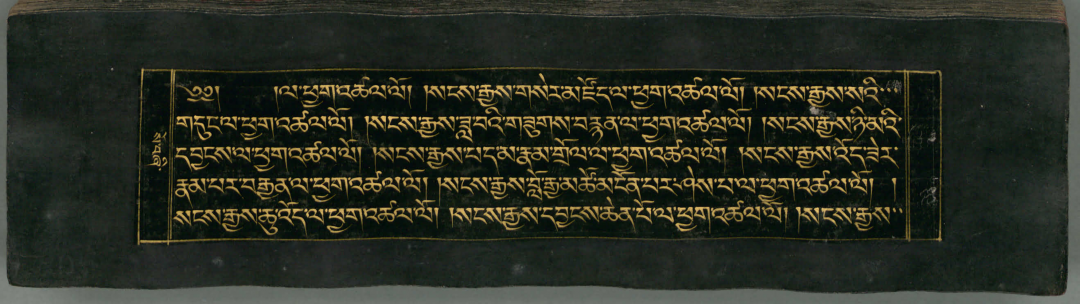 ༄༅། །ལ་ཕྱག་འཚལ་ལོ། །སངས་རྒྱས་གསེར་མདོད་ལ་ཕྱག་འཚལ་ལོ། །སངས་རྒྱས་སའི་
གདུང་ལ་ཕྱག་འཚལ་ལོ། །སངས་རྒྱས་ཟླ་བའི་གཟུགས་བརྙན་ལ་ཕྱག་འཚལ་ལོ། །སངས་རྒྱས་ཉི་མའི་
དབྱངས་ལ་ཕྱག་འཚལ་ལོ། །སངས་རྒྱས་པད་མ་རྣམ་གྲོལ་ལ་ཕྱག་འཚལ་ལོ། །སངས་རྒྱས་འོད་ཟེར་
རྣམ་པར་བརྒྱན་ལ་ཕྱག་འཚལ་ལོ། །སངས་རྒྱས་བློ་རྒྱ་མཚོ་མངོན་པར་ཤེས་པ་ལ་ཕྱག་འཚལ་ལོ། །
སངས་རྒྱས་ཆུ་འོད་ལ་ཕྱག་འཚལ་ལོ། །སངས་རྒྱས་དབྱངས་ཆེན་པོ་ལ་ཕྱག་འཚལ་ལོ། །སངས་རྒྱས་